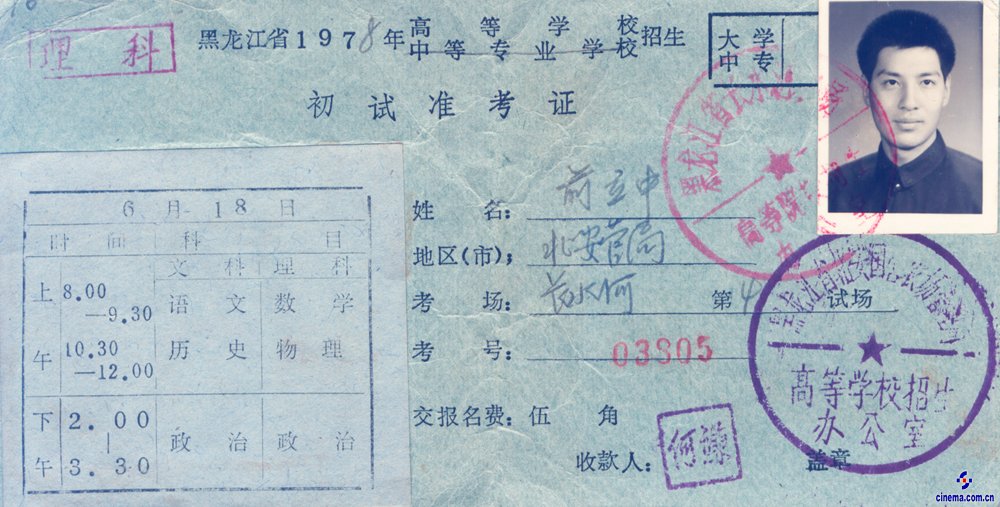 理科
黑龙江省1978年高等学校招生
中等专业学校
大学
中专
初试准考证
6月18日
时间 科目
文科 理科
上午 8.00—9.30 语文 数学
10.30—12.00 历史 物理
下午 2.00—3.30 政治 政治
姓名：前立中
地区(市)：北安管局
考场：长水河 第4试场
考号：03805
交报名费：伍角
收款人： 盖章
高等学校招生
办公室
cinema.com.cn